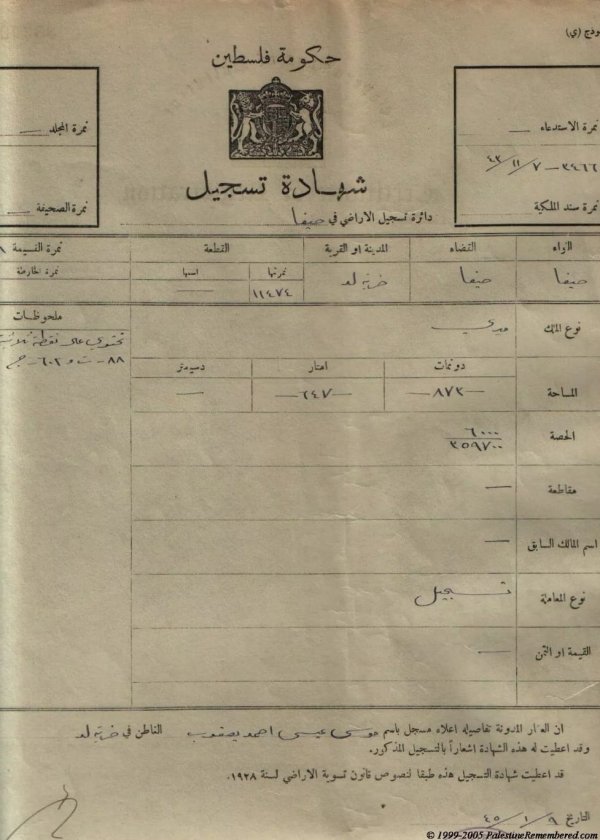 حكومة فلسطين
نمرة الاستدعاء —
٣٤٦٦ - ٧ / ١١ / ٤٣
نمرة سند الملكية
نمرة المجلد —
نمرة الصحيفة —
شهادة تسجيل
دائرة تسجيل الاراضي في حيفا
اللواء القضاء المدينة او القرية القطعة نمرة القسيمة
نمرتها اسمها نمرة الخارطة
حيفا حيفا خربة لد ١١٤٧٤ —
نوع الملك ميري
ملحوظات
تحتوي على نقطة
دونمات امتار دسيمتر
المساحة —٨٧٣— —٦٤٧— —
الحصة ٦٠٠٠
٣٥٩٧٠٠
مقاطعة —
اسم المالك السابق —
نوع المعاملة تسجيل
القيمة او الثمن —
ان العقار المدونة تفاصيله اعلاه مسجل باسم موسى عيسى احمد يعقوب القاطن في خربة لد
وقد اعطيت له هذه الشهادة اشعاراً بالتسجيل المذكور.
قد اعطيت شهادة التسجيل هذه طبقا لنصوص قانون تسوية الاراضي لسنة ١٩٢٨.
التاريخ ٩ / ١ / ٤٥
© 1999-2005 PalestineRemembered.com